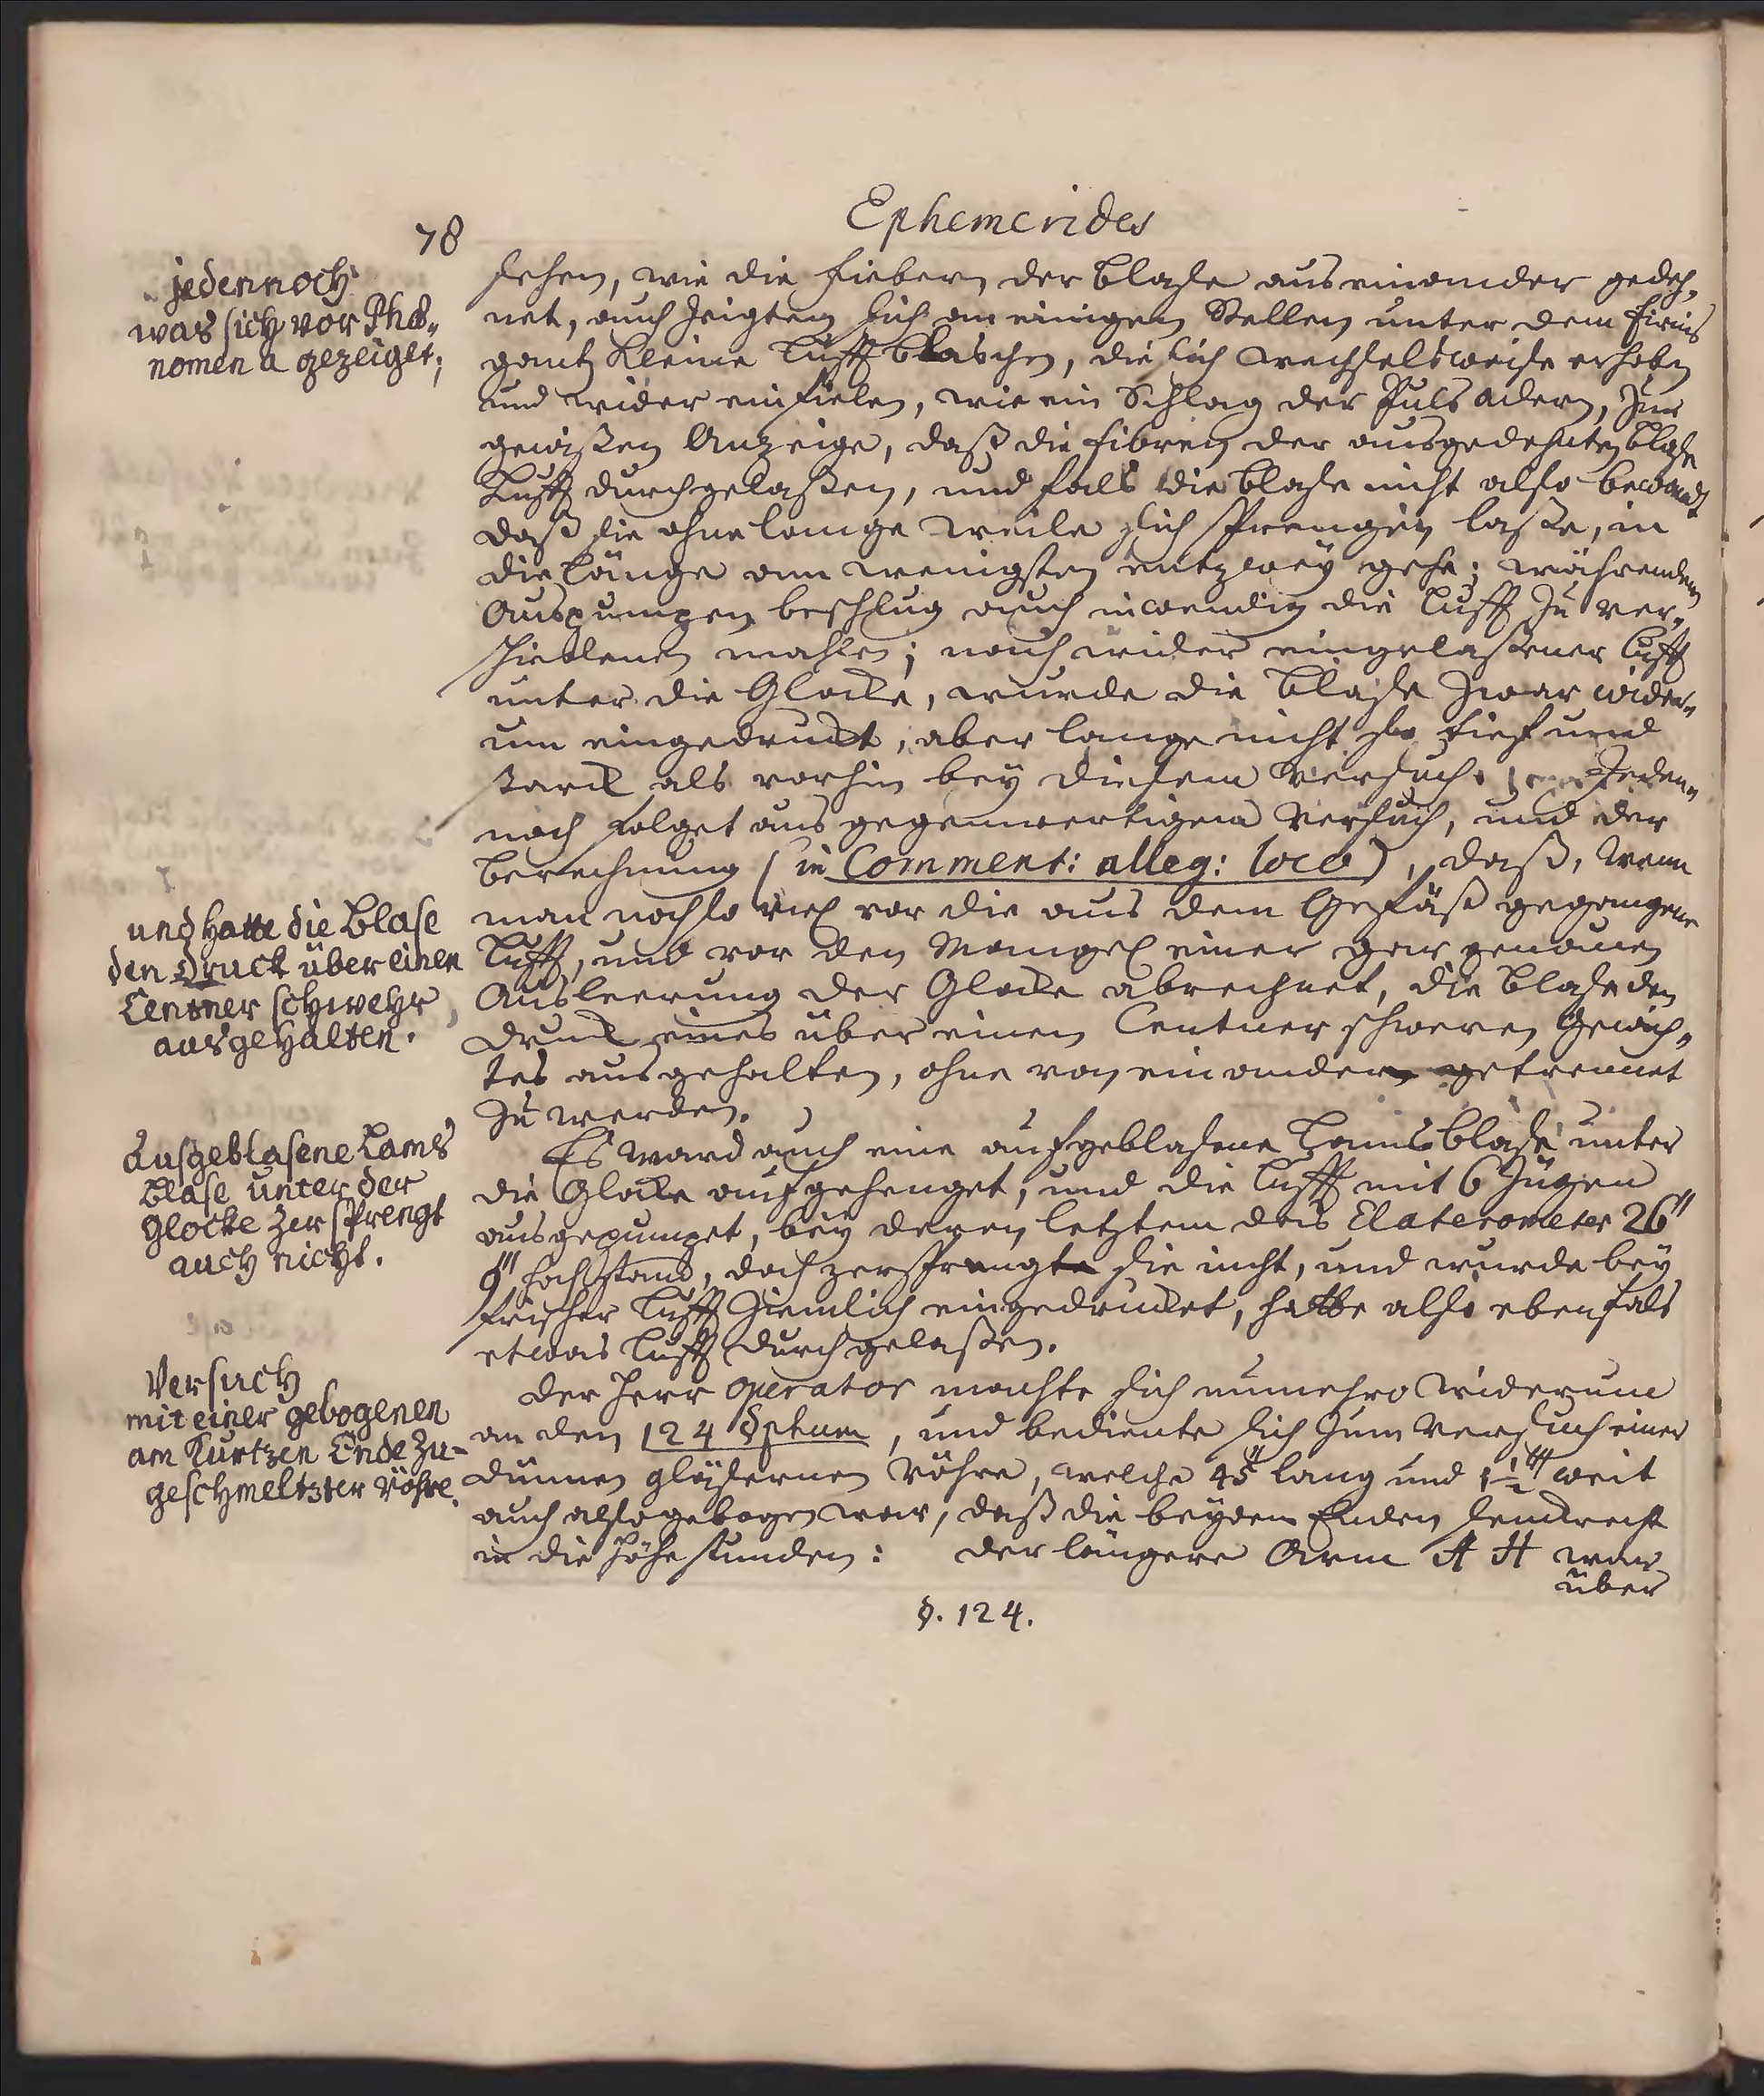 78
Ephemerides
jedennoch
was sich vor Phae„
nomena gezeiget;
sehen, wie die fiebern der Blase auseinander gedeh„
net, auch zeigten sich an einigen Stellen unter dem firnis
gantz kleine Lufft blaschen, die sich wechselsweise erhoben
und wider einfielen, wie ein Schlag der Puls adern, zur
gewißen Anzeige, daß die fibren der ausgedehnten Blase
Lufft durchgelaßen, und fals die Blase nicht also bewandt
daß sie ohne lange weile sich sprengen laße, in
die länge am wenigsten entzwey gehe; währendem
Auspumpen beschlug auch inwendig die Lufft zu ver„
schiedenen mahlen; nach wider eingelaßener Lufft
unter die Glocke, wurde die Blase zwar wider„
um eingedruckt, aber lange nicht so tief und
starck als vorhin bey diesem Versuch. Jeden„
noch folget aus gegenwertigem Versuch, und der
Berechnung (in Comment: alleg: loco), daß, wenn
und hatte die Blase
den Druck über einen
Centner schwehr
ausgehalten.
man noch so viel vor die aus dem Gefäß gegangene
Lufft, und vor den Mangel einer gar genauen
Ausleerung der Glocke abrechnet, die Blase den
Druck eines über einen Centner schweren Gewich„
tes ausgehalten, ohne von einander getrennet
zu werden.
Aufgeblasene Lams
Blase unter der
Glocke zersprengt
auch nicht.
Es ward auch eine aufgeblasene Lamsblase unter
die Glocke aufgehenget, und die Lufft mit 6 Zügen
ausgepumpet, bey deren letztem das Elaterometer 26"
9"' hoch stand, doch zersprengte sie nicht, und wurde bey
frischer Lufft ziemlich eingedrucket, hatte also ebenfals
etwas Lufft durchgelaßen.
Versuch
mit einer gebogenen
am Kurtzen Ende zu-
geschmeltzter Röhre.
Der Herr Operator machte sich nunmehro widerum
an den 124 §phum, und bediente sich zum Versuch einer
dünnen gläsernen Röhre, welche 45" lang und 1 1/2"' weit
auch also gebogen war, daß die beyden Enden senckrecht
in die Höhe stunden: der längere Arm A H war
über
§. 124.